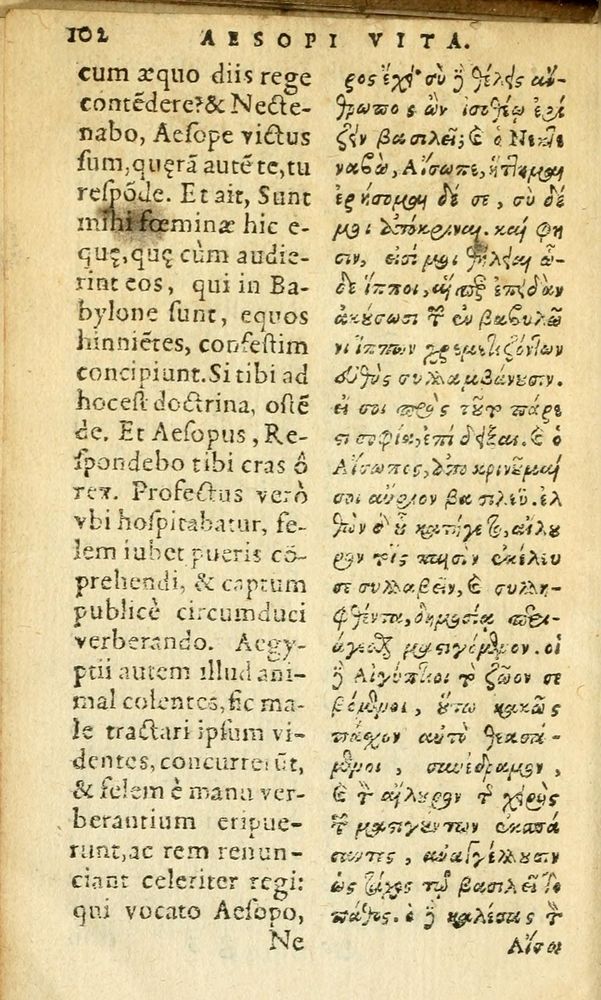 102 AESOPI VITA.
cum æquo diis rege
contēdere? & Necte-
nabo, Aesope victus
sum, quęrā autē te, tu
respōde. Et ait, Sunt
mihi fœminæ hic e-
quę, quę cùm audie-
rint eos, qui in Ba-
bylone sunt, equos
hinniētes, confestim
concipiunt. Si tibi ad
hoc est doctrina, ostē
de. Et Aesopus, Re-
spondebo tibi cras ô
rex. Profectus verò
vbi hospitabatur, fe-
lem iubet pueris cō-
prehendi, & captum
publicè circumduci
verberando. Aegy-
ptii autem illud ani-
mal colentes, sic ma-
le tractari ipsum vi-
dentes, concurrerūt,
& felem è manu ver-
berantium eripue-
runt, ac rem renun-
ciant celeriter regi:
qui vocato Aesopo,
Ne
ρος ἔχει· σὺ δὲ θέλεις ἄν-
θρωπος ὢν ἰσοθέῳ ἐρί
ζειν βασιλεῖ; καὶ ὁ Νεκτε
ναβὼ, Αἴσωπε, ἥττημαι
ἐρήσομαι δέ σε, σὺ δέ
μοι ἀπόκριναι. καί φη
σιν, εἰσί μοι θήλειαι ὧ-
δε ἵπποι, αἵπερ ἐπειδὰν
ἀκούσωσι τῶν ἐν βαβυλῶ
νι ἵππων χρεμετιζόντων
εὐθὺς συλλαμβάνουσιν.
εἴ σοι πρὸς τοῦτο πάρε
στι σοφία, ἐπίδειξαι. καὶ ὁ
Αἴσωπος, ἀποκρινοῦμαί
σοι αὔριον βασιλεῦ. ἐλ
θὼν δ' οὗ κατήγετο, αἴλου
ρον τοῖς παισὶν ἐκέλευ
σε συλλαβεῖν, καὶ συλλη-
φθέντα, δημοσίᾳ περι-
άγεσθαι μαστιγούμενον. οἱ
δὲ Αἰγύπτιοι τὸ ζῶον σε
βόμενοι, οὕτω κακῶς
πάσχον αὐτὸ θεασά-
μενοι, συνέδραμον,
καὶ τὸν αἴλουρον τῆς χειρὸς
τῶν μαστιγούντων ἐκσπά
σαντες, ἀναγγέλλουσιν
ὡς τάχος τῷ βασιλεῖ τὸ
πάθος. ὁ δὲ καλέσας τὸν
Αἴσω